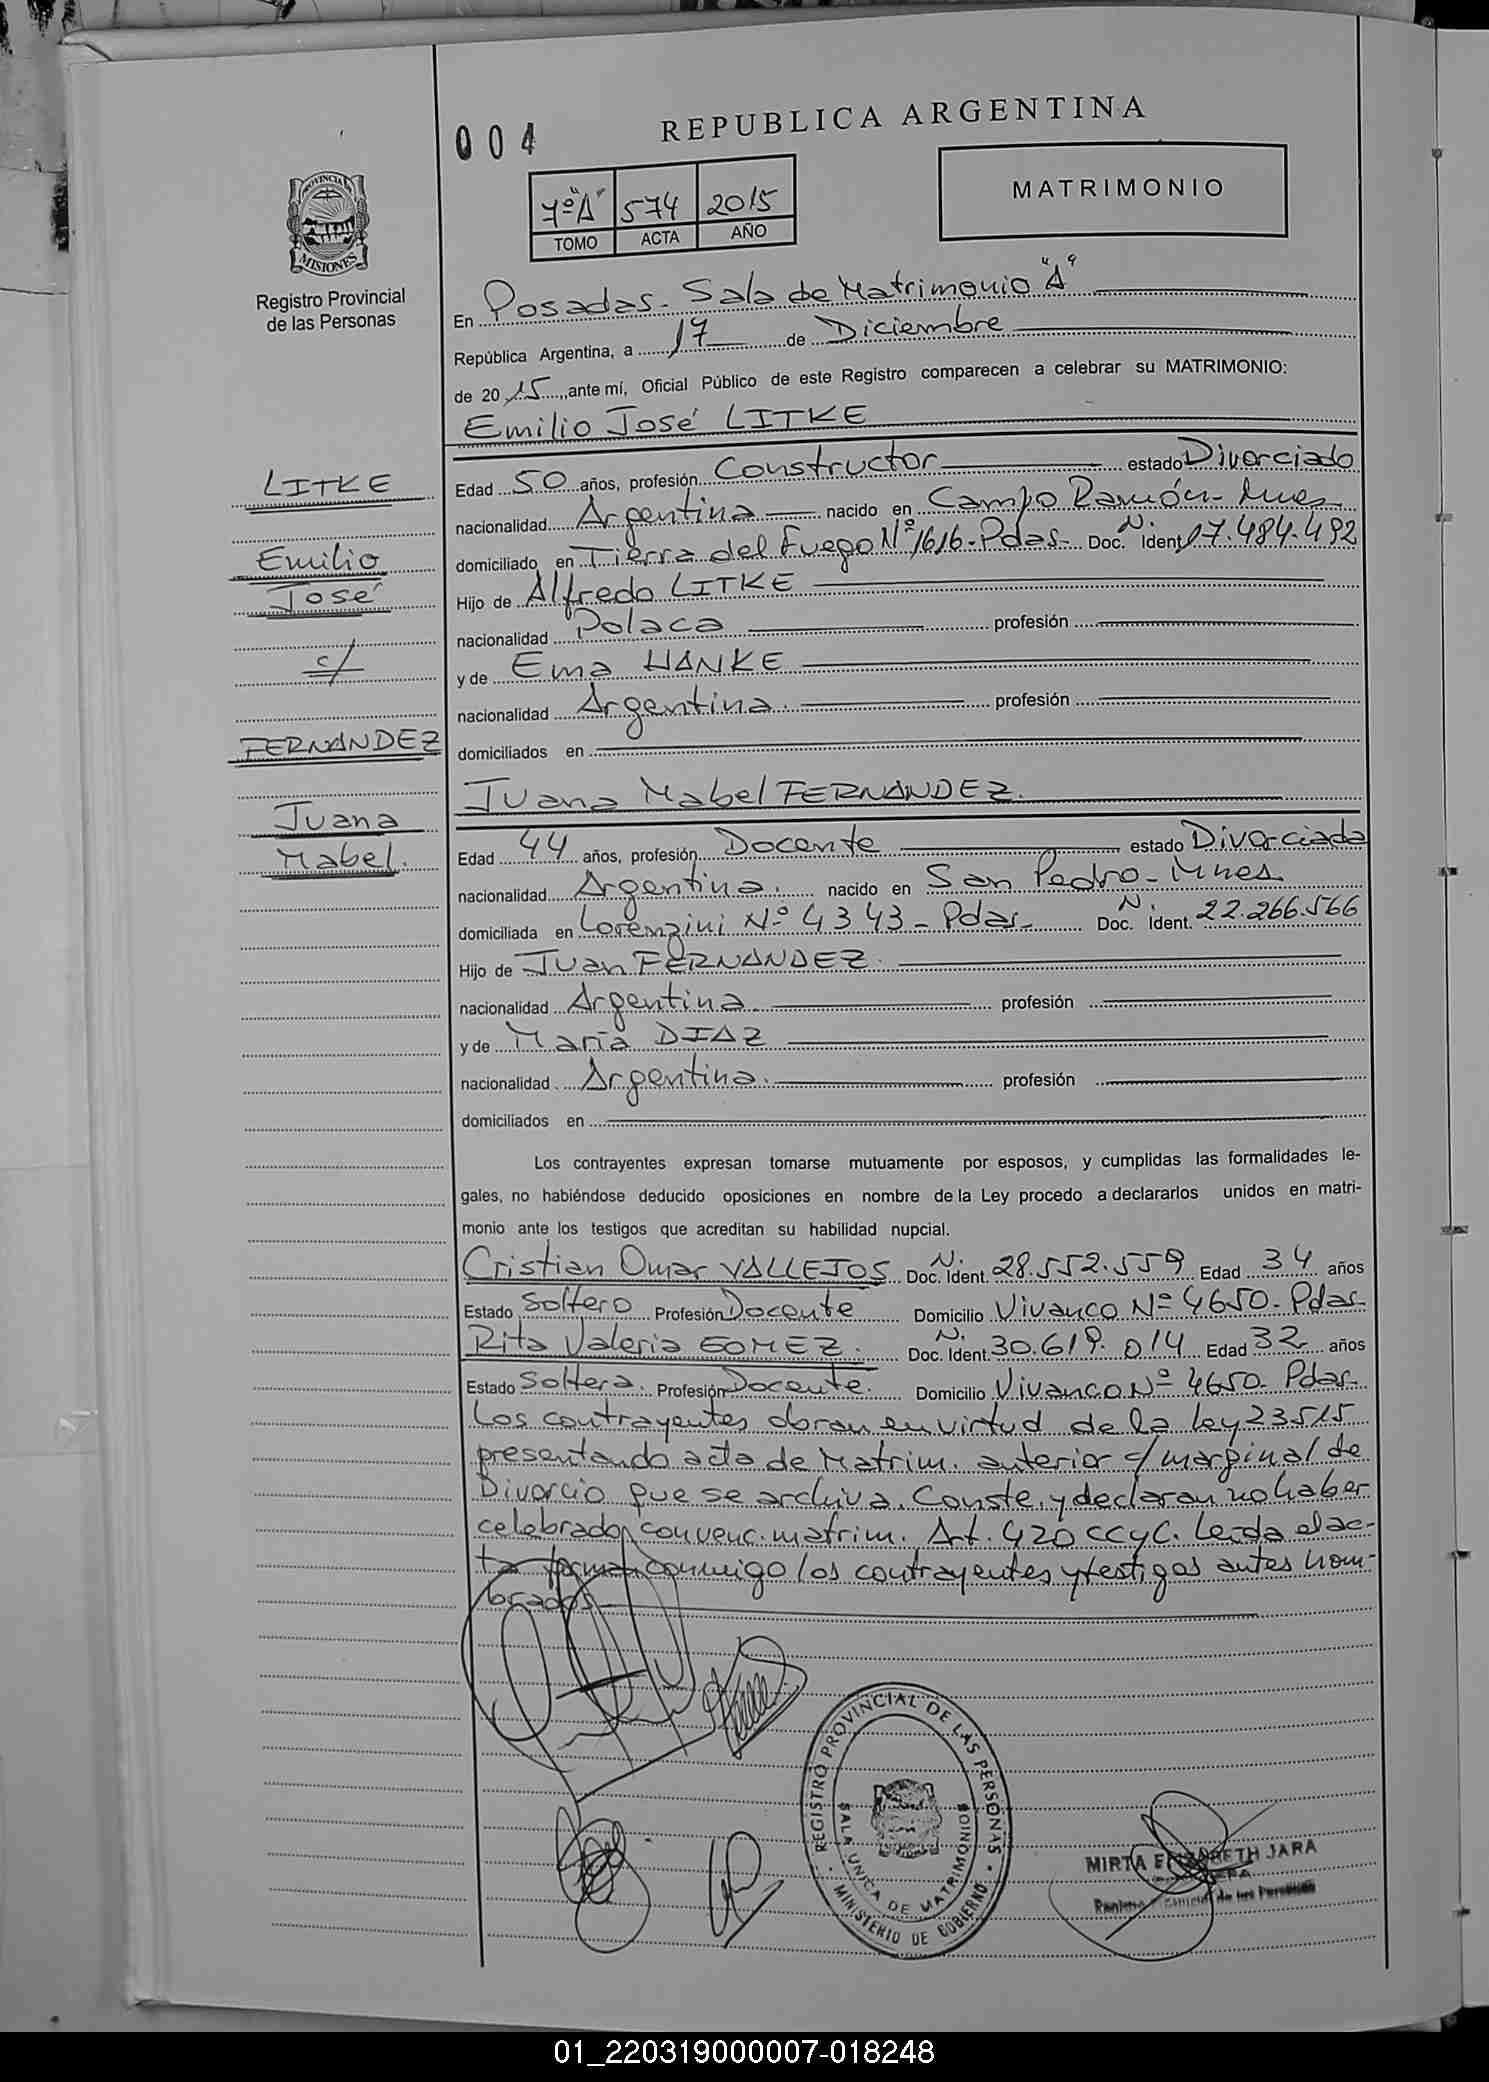 004
REPUBLICA ARGENTINA
7º"A" 574 2015
TOMO ACTA AÑO
MATRIMONIO
PROVINCIA DE
MISIONES
Registro Provincial
de las Personas
En Posadas - Sala de Matrimonio "A"
República Argentina, a 17 de Diciembre
de 2015, ante mí, Oficial Público de este Registro comparecen a celebrar su MATRIMONIO:
Emilio José LITKE
LITKE
Emilio
José
c/
FERNANDEZ
Juana
Mabel.
Edad 50 años, profesión Constructor estado Divorciado
nacionalidad Argentina nacido en Campo Ramón - Mnes
domiciliado en Tierra del Fuego Nº 1616 - Pdas - Doc. N. Ident. 17.484.492
Hijo de Alfredo LITKE
nacionalidad Polaca profesión
y de Ema HANKE
nacionalidad Argentina. profesión
domiciliados en
Juana Mabel FERNANDEZ.
Edad 44 años, profesión Docente estado Divorciada
nacionalidad Argentina. nacido en San Pedro - Mnes
domiciliada en Lorenzini Nº 4343 - Pdas - Doc. N. Ident. 22.266.566
Hijo de Juan FERNANDEZ.
nacionalidad Argentina profesión
y de María DIAZ
nacionalidad Argentina. profesión
domiciliados en
Los contrayentes expresan tomarse mutuamente por esposos, y cumplidas las formalidades le-
gales, no habiéndose deducido oposiciones en nombre de la Ley procedo a declararlos unidos en matri-
monio ante los testigos que acreditan su habilidad nupcial.
Cristian Omar VALLEJOS Doc. N. Ident. 28.552.559 Edad 34 años
Estado Soltero Profesión Docente Domicilio Vivanco Nº 4650 - Pdas
Rita Valeria GOMEZ. Doc. N. Ident. 30.619.014 Edad 32 años
Estado Soltera. Profesión Docente. Domicilio Vivanco Nº 4650 - Pdas -
Los contrayentes obran en virtud de la ley 23515
presentando acta de Matrim. anterior c/ marginal de
Divorcio que se archiva. Conste, y declaran no haber
celebrado convenc. matrim. Art. 420 CCyC. Leída el ac-
ta firman conmigo los contrayentes y testigos antes nom-
brados
REGISTRO PROVINCIAL DE LAS PERSONAS
SALA UNICA DE MATRIMONIOS
MINISTERIO DE GOBIERNO
MIRTA ELIZABETH JARA
JEFA
de las Personas
01_220319000007-018248